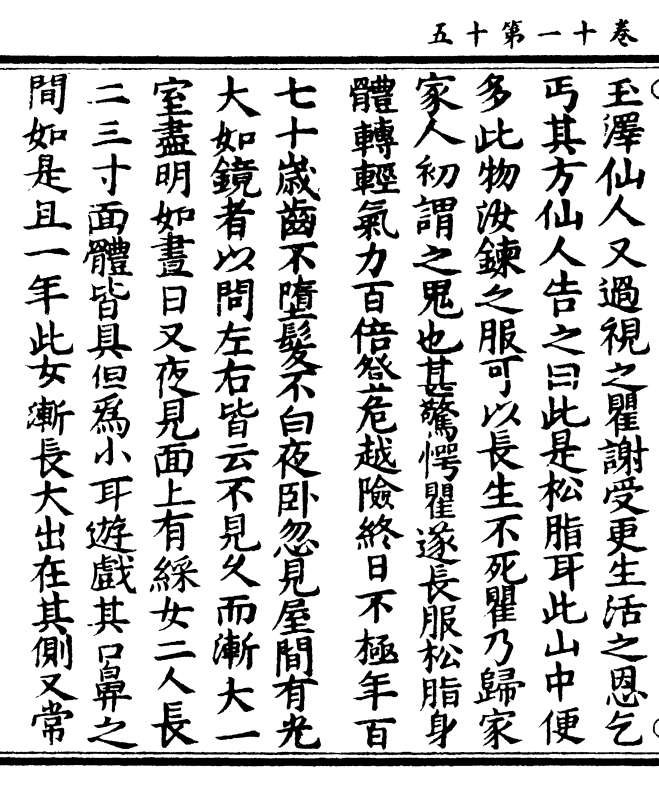 卷十一第十五
玉澤仙人又過視之瞿謝受更生活之恩乞
丐其方仙人告之曰此是松脂耳此山中便
多此物汝鍊之服可以長生不死瞿乃歸家
家人初謂之鬼也甚驚愕瞿遂長服松脂身
體轉輕氣力百倍登危越險終日不極年百
七十歲齒不墮髮不白夜臥忽見屋間有光
大如鏡者以問左右皆云不見久而漸大一
室盡明如晝日又夜見面上有綵女二人長
二三寸面體皆具但爲小耳遊戲其口鼻之
間如是且一年此女漸長大出在其側又常